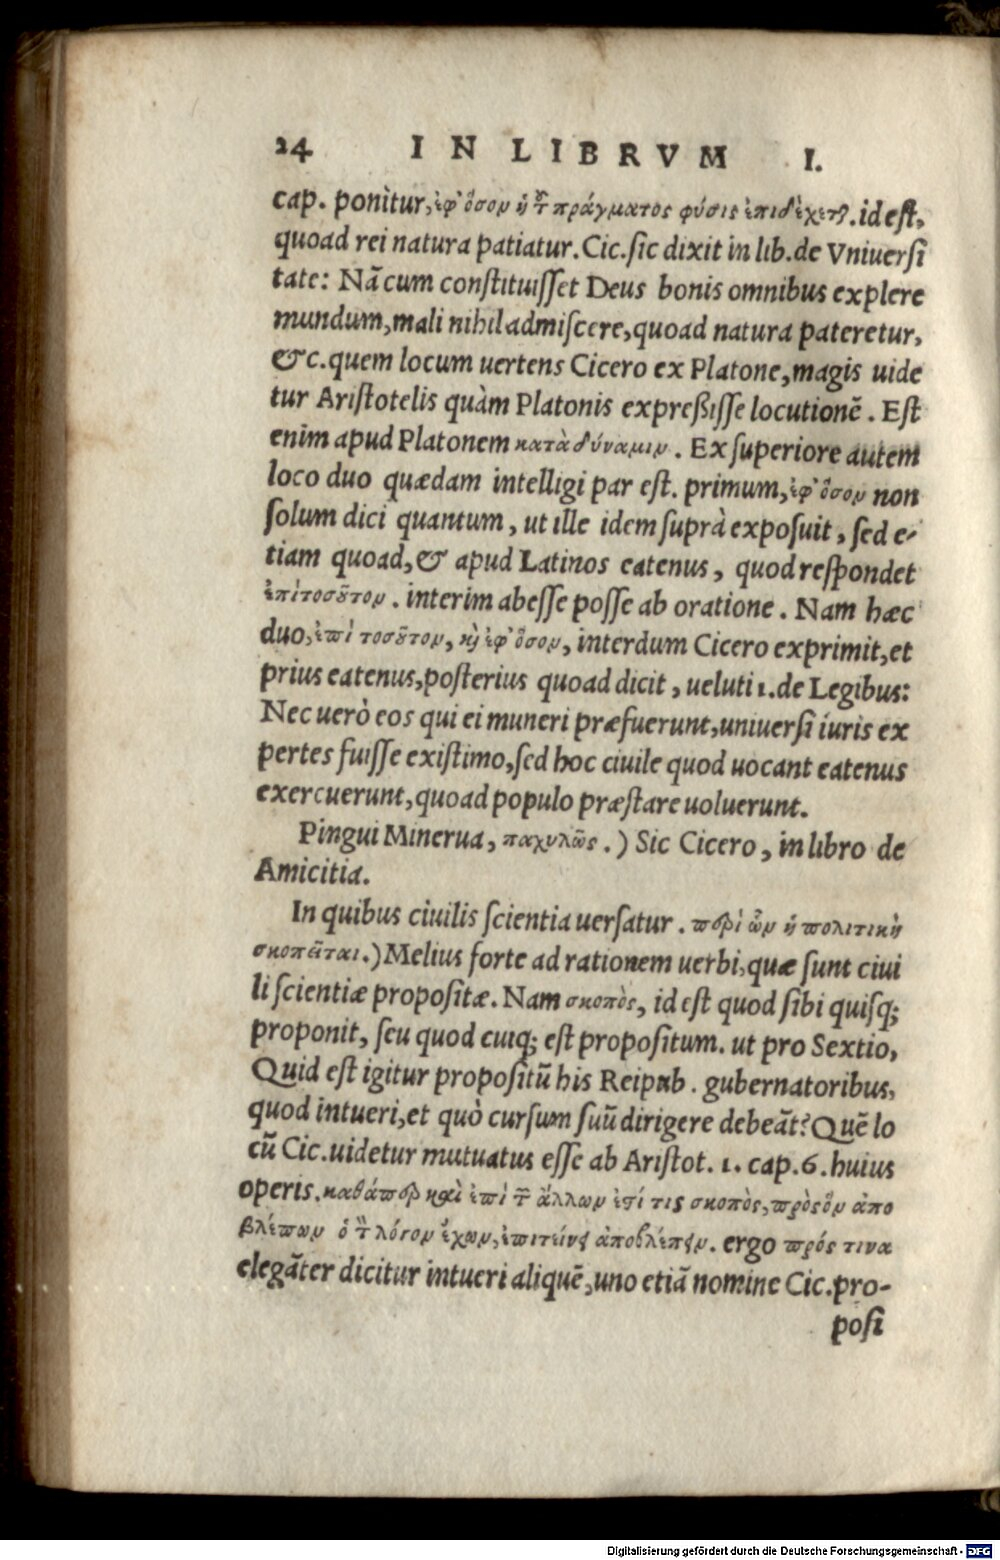 24 IN LIBRVM I.
cap. ponìtur, ἐφ' ὅσον ἡ τ͂ πράγματος φύσις ἐπιδέχεται. id eſt,
quoad rei natura patiatur. Cic. ſic dixit in lib. de Vniuerſi
tate: Nā cum conſtituiſſet Deus bonis omnibus explere
mundum, mali nihil admiſcere, quoad natura pateretur,
&c. quem locum uertens Cicero ex Platone, magis uide
tur Ariſtotelis quàm Platonis expreßiſſe locutionē. Eſt
enim apud Platonem κατὰ δύναμιν. Ex ſuperiore autem
loco duo quædam intelligi par eſt. primum, ἐφ' ὅσον non
ſolum dici quantum, ut ille idem ſuprà expoſuit, ſed e-
tiam quoad, & apud Latinos eatenus, quod reſpondet
ἐπὶ τοσοῦτον. interim abeſſe poſſe ab oratione. Nam hæc
duo, ἐπὶ τοσοῦτον, καὶ ἐφ' ὅσον, interdum Cicero exprimit, et
prius eatenus, poſterius quoad dicit, ueluti 1. de Legibus:
Nec uerò eos qui ei muneri præfuerunt, uniuerſi iuris ex
pertes fuiſſe exiſtimo, ſed hoc ciuile quod uocant eatenus
exercuerunt, quoad populo præſtare uoluerunt.
Pingui Minerua, παχυλῶς.) Sic Cicero, in libro de
Amicitia.
In quibus ciuilis ſcientia uerſatur. περὶ ὧν ἡ πολιτικὴ
σκοπεῖται.) Melius forte ad rationem uerbi, quæ ſunt ciui
li ſcientiæ propoſitæ. Nam σκοπὸς, id eſt quod ſibi quiſq;
proponit, ſeu quod cuiq; eſt propoſitum. ut pro Sextio,
Quid eſt igitur propoſitū his Reipub. gubernatoribus,
quod intueri, et quò curſum ſuū dirigere debeāt? Quē lo
cū Cic. uidetur mutuatus eſſe ab Ariſtot. 1. cap. 6. huius
operis. καθάπερ καὶ ἐπὶ τῶν ἄλλων ἐστί τις σκοπὸς, πρὸς ὃν ἀπο
βλέπων ὁ τὸν λόγον ἔχων, ἐπιτείνει ἀποβλέπειν. ergo πρός τινα
elegāter dicitur intueri aliquē, uno etiā nomine Cic. pro-
poſi
Digitalisierung gefördert durch die Deutsche Forschungsgemeinschaft - DFG